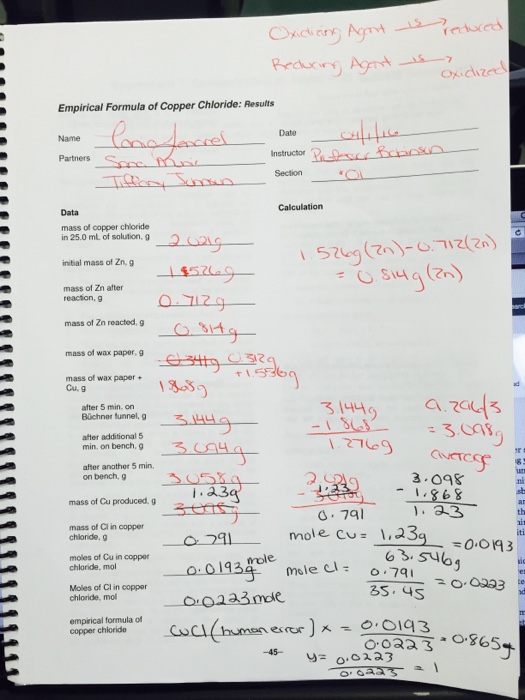 Oxidizing Agent is → reduced
Reducing Agent is → oxidized
Empirical Formula of Copper Chloride: Results
Name
Date 04/1/16
Partners
Instructor Professor Robinson
Tiffany
Section 01
Data
Calculation
mass of copper chloride
in 25.0 mL of solution, g 2.021g
1.526g (Zn) - 0.712 (Zn)
= 0.814g (Zn)
initial mass of Zn, g 1.526g
mass of Zn after
reaction, g 0.712g
mass of Zn reacted, g 0.814g
mass of wax paper, g 0.341g 0.312g
+1.5569
mass of wax paper +
Cu, g 1.868g
after 5 min. on
Büchner funnel, g 3.144g
3.144g
- 1.868
1.276g
9.296/3
= 3.098g
average
after additional 5
min. on bench, g 3.094g
after another 5 min.
on bench, g 3.058g
1.23g
mass of Cu produced, g 3.098
2.021g
- 1.23
0.791
3.098
- 1.868
1.23
mass of Cl in copper
chloride, g 0.791
mole Cu = 1.23g = 0.0193
63.546g
moles of Cu in copper
chloride, mol 0.0193 mole
mole Cl = 0.791 = 0.0223
35.45
Moles of Cl in copper
chloride, mol 0.0223 mole
empirical formula of
copper chloride CuCl (human error)
x = 0.0193 = 0.865
0.0223
-45-
y = 0.0223 = 1
0.0223